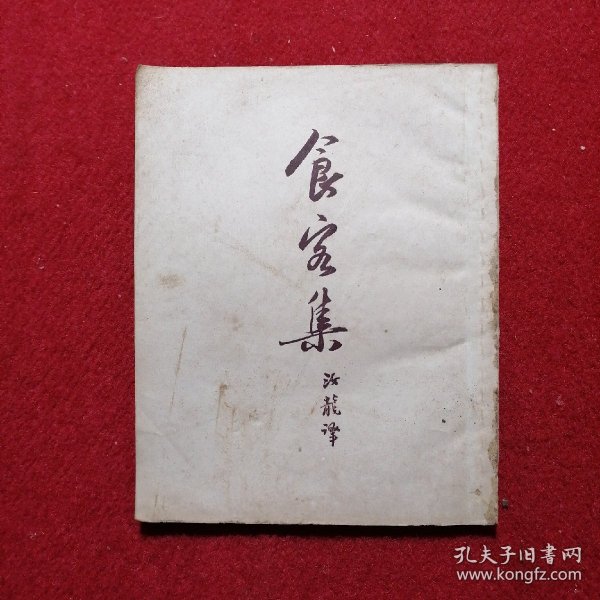 食客集
汝龍譯
孔夫子旧书网
www.kongfz.com